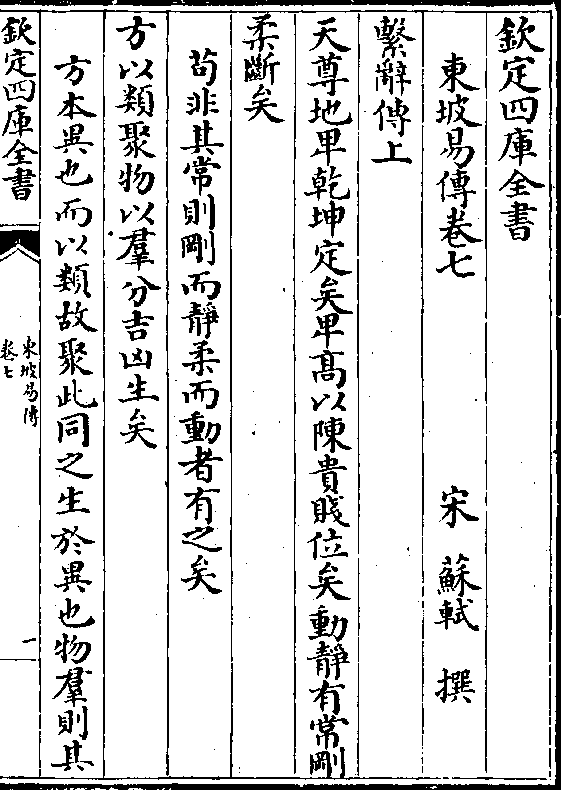 欽定四庫全書
東坡易傳卷七 宋 蘇軾 撰
繫辭傳上
天尊地卑乾坤定矣卑高以陳貴賤位矣動靜有常剛
柔斷矣
苟非其常則剛而靜柔而動者有之矣
方以類聚物以羣分吉凶生矣
方本異也而以類故聚此同之生於異也物羣則其
欽定四庫全書
東坡易傳
卷七
一